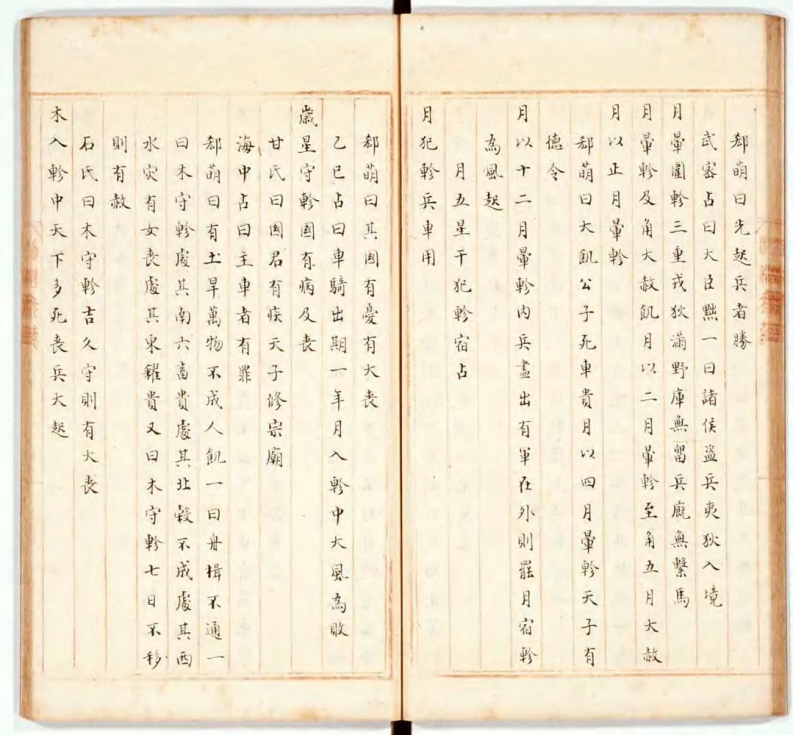 郄萌曰先起兵者勝
武密占曰大臣黜一曰諸侯盜兵夷狄入境
月暈圍軫三重戎狄滿野庫無留兵廐無繫馬
月暈軫及角大赦飢月以二月暈軫至角五月大赦
月以正月暈軫
郄萌曰大飢公子死車貴月以四月暈軫天子有
德令
月以十二月暈軫內兵盡出有軍在外則罷月宿軫
為風起
月五星干犯軫宿占
月犯軫兵車用
郄萌曰其国有憂有大喪
乙巳占曰車騎出期一年月入軫中大風為敗
歲星守軫國有病及喪
甘氏曰國君有疾天子修宗廟
海中占曰主車者有罪
郄萌曰有土旱萬物不成人飢一曰舟楫不通一
曰木守軫處其南六畜貴處其北穀不成處其西
水灾有女喪處其東糴貴又曰木守軫七日不移
則有赦
石氏曰木守軫吉久守則有大喪
木入軫中天下多死喪兵大起